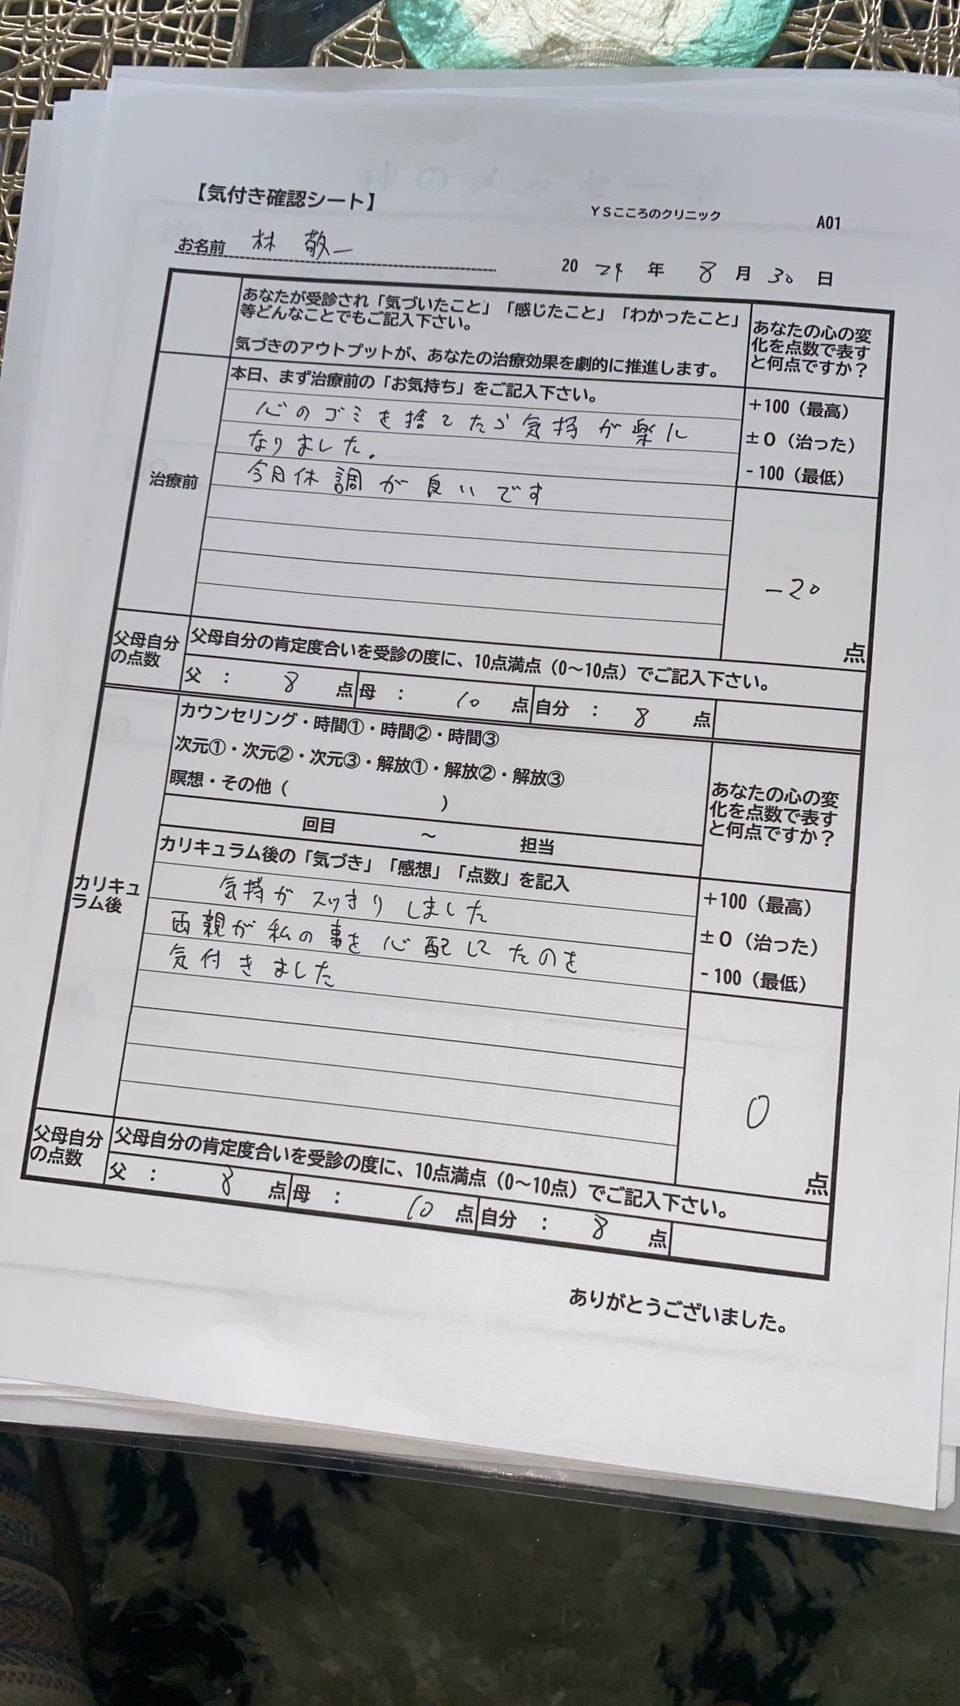 【気付き確認シート】
YSこころのクリニック
A01
お名前 林 敬一
2024年 8月30日
あなたが受診され「気づいたこと」「感じたこと」「わかったこと」
等どんなことでもご記入下さい。
気づきのアウトプットが、あなたの治療効果を劇的に推進します。
あなたの心の変
化を点数で表す
と何点ですか？
治療前
本日、まず治療前の「お気持ち」をご記入下さい。
心のゴミを捨てたら気持が楽に
なりました。
今月体調が良いです
+100（最高）
±0（治った）
-100（最低）
-20
点
父母自分
の点数
父母自分の肯定度合いを受診の度に、10点満点（0～10点）でご記入下さい。
父 ： 8 点 母 ： 10 点 自分 ： 8 点
カリキュ
ラム後
カウンセリング・時間①・時間②・時間③
次元①・次元②・次元③・解放①・解放②・解放③
瞑想・その他（ ）
回目 ～ 担当
あなたの心の変
化を点数で表す
と何点ですか？
カリキュラム後の「気づき」「感想」「点数」を記入
気持がスッキりしました
両親が私の事を心配してたのを
気付きました
+100（最高）
±0（治った）
-100（最低）
0
点
父母自分
の点数
父母自分の肯定度合いを受診の度に、10点満点（0～10点）でご記入下さい。
父 ： 8 点 母 ： 10 点 自分 ： 8 点
ありがとうございました。